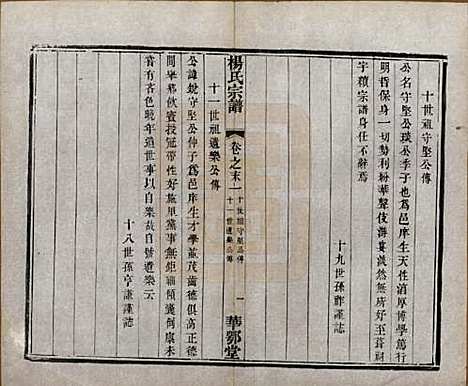 十世祖守堅公傳
公名守堅公璞公季子也為邑庠生天性渾厚博學篤行
明哲保身一切勢利紛華聲伎海宴然無與世
宇積宗譜身任不辭焉
十九世孫 謹誌
楊氏宗譜
卷之末一
十世祖守堅公傳
十一世遺樂公傳
一
華鄂堂
十一世祖遺樂公傳
公諱銳守堅公仲子爲邑庠生才學並茂齒德俱高正德
間舉鄉飲賓授冠帶性好施里黨事無鉅細傾囊倒康未
嘗有吝色凡遺世事以自樂故自號遺樂云
十八世孫亨謙謹誌